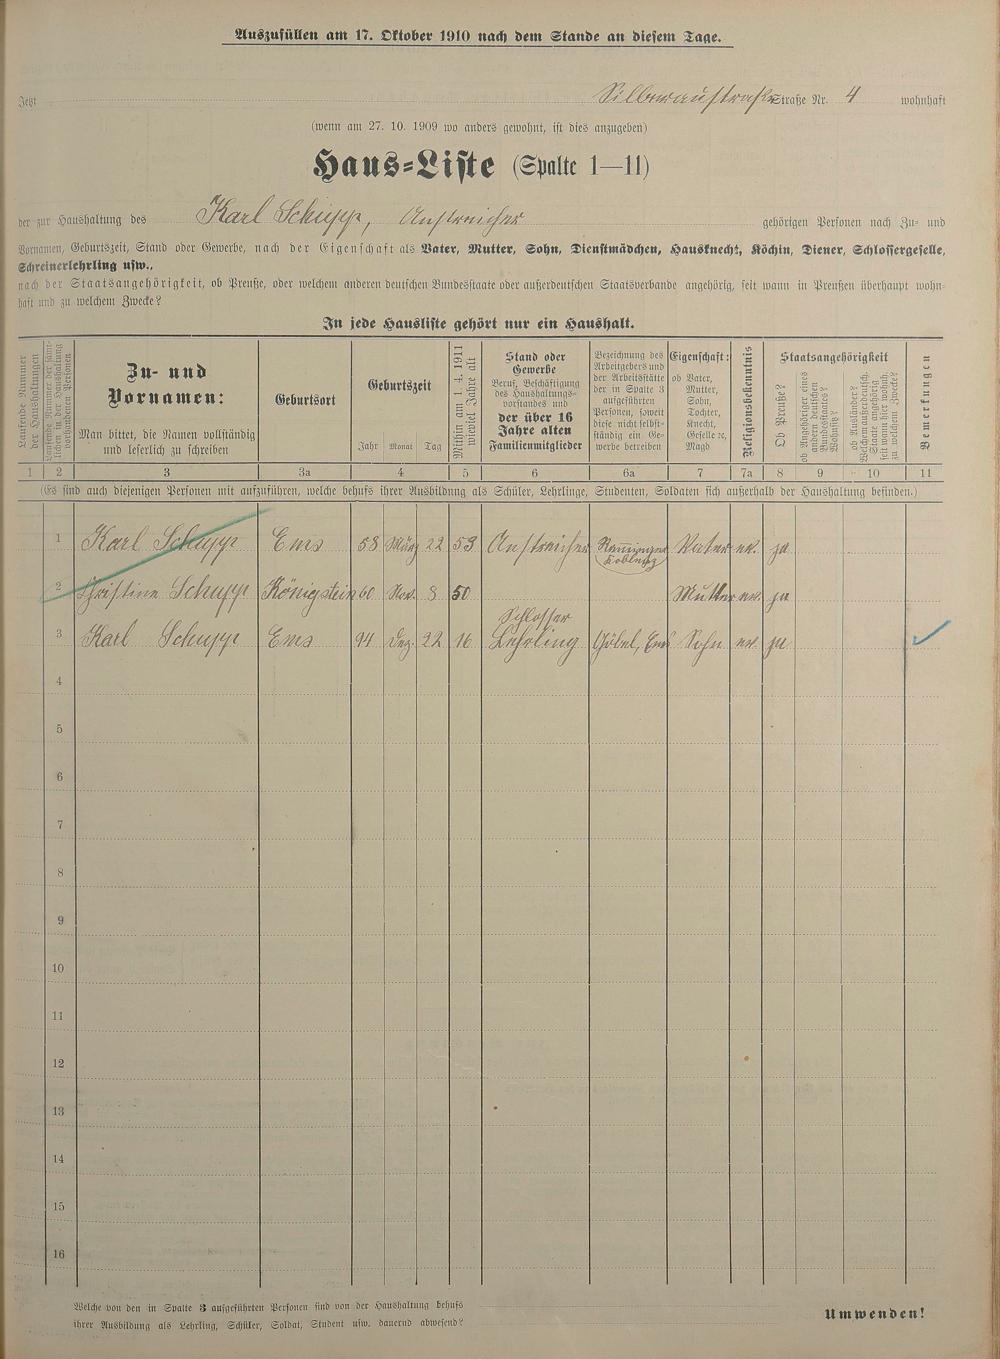 Auszufüllen am 17. Oktober 1910 nach dem Stande an diesem Tage.
Jetzt Silberaustraße Straße Nr. 4 wohnhaft
(wenn am 27. 10. 1909 wo anders gewohnt, ist dies anzugeben)
Haus-Liste (Spalte 1—11)
der zur Haushaltung des Karl Schupp, Anstreicher gehörigen Personen nach Zu- und
Vornamen, Geburtszeit, Stand oder Gewerbe, nach der Eigenschaft als Vater, Mutter, Sohn, Dienstmädchen, Hausknecht, Köchin, Diener, Schlossergeselle,
Schreinerlehrling usw.,
nach der Staatsangehörigkeit, ob Preuße, oder welchem anderen deutschen Bundesstaate oder außerdeutschen Staatsverbande angehörig, seit wann in Preußen überhaupt wohn-
haft und zu welchem Zwecke?
In jede Hausliste gehört nur ein Haushalt.
Laufende Nummer
der Haushaltungen
Laufende Nummer der sämt-
lichen in der Haushaltung
vorhandenen Personen
Zu- und
Vornamen:
Man bittet, die Namen vollständig
und leserlich zu schreiben
Geburtsort
Geburtszeit
Jahr Monat Tag
Mithin am 1. 4. 1911
wieviel Jahre alt
Stand oder
Gewerbe
Beruf, Beschäftigung
des Haushaltungs-
vorstandes und
der über 16
Jahre alten
Familienmitglieder
Bezeichnung des
Arbeitgebers und
der Arbeitsstätte
der in Spalte 3
aufgeführten
Personen, soweit
diese nicht selbst-
ständig ein Ge-
werbe betreiben
Eigenschaft:
ob Vater,
Mutter,
Sohn,
Tochter,
Knecht,
Geselle ꝛc,
Magd
Religionsbekenntnis
Staatsangehörigkeit
Ob Preuße?
ob Angehöriger eines
andern deutschen
Bundesstaates?
Wohnsitz?
ob Ausländer?
Welchem außerdeutsch.
Staate angehörig
seit wann hier wohnh.
zu welchem Zwecke?
Bemerkungen
1 2 3 3a 4 5 6 6a 7 7a 8 9 10 11
(Es sind auch diejenigen Personen mit aufzuführen, welche behufs ihrer Ausbildung als Schüler, Lehrlinge, Studenten, Soldaten sich außerhalb der Haushaltung befinden.)
1 Karl Schupp Ems 58 März 22 53 Anstreicher Koblenz Vater ev. ja
2 Christine Schupp Königstein 60 Nov. 8 50 Mutter ev. ja
3 Karl Schupp Ems 94 Dez. 22 16 Schlosser
Lehrling Göbel, Ems Sohn ev. ja
4
5
6
7
8
9
10
11
12
13
14
15
16
Welche von den in Spalte 3 aufgeführten Personen sind von der Haushaltung behufs
ihrer Ausbildung als Lehrling, Schüler, Soldat, Student usw. dauernd abwesend?
Umwenden!